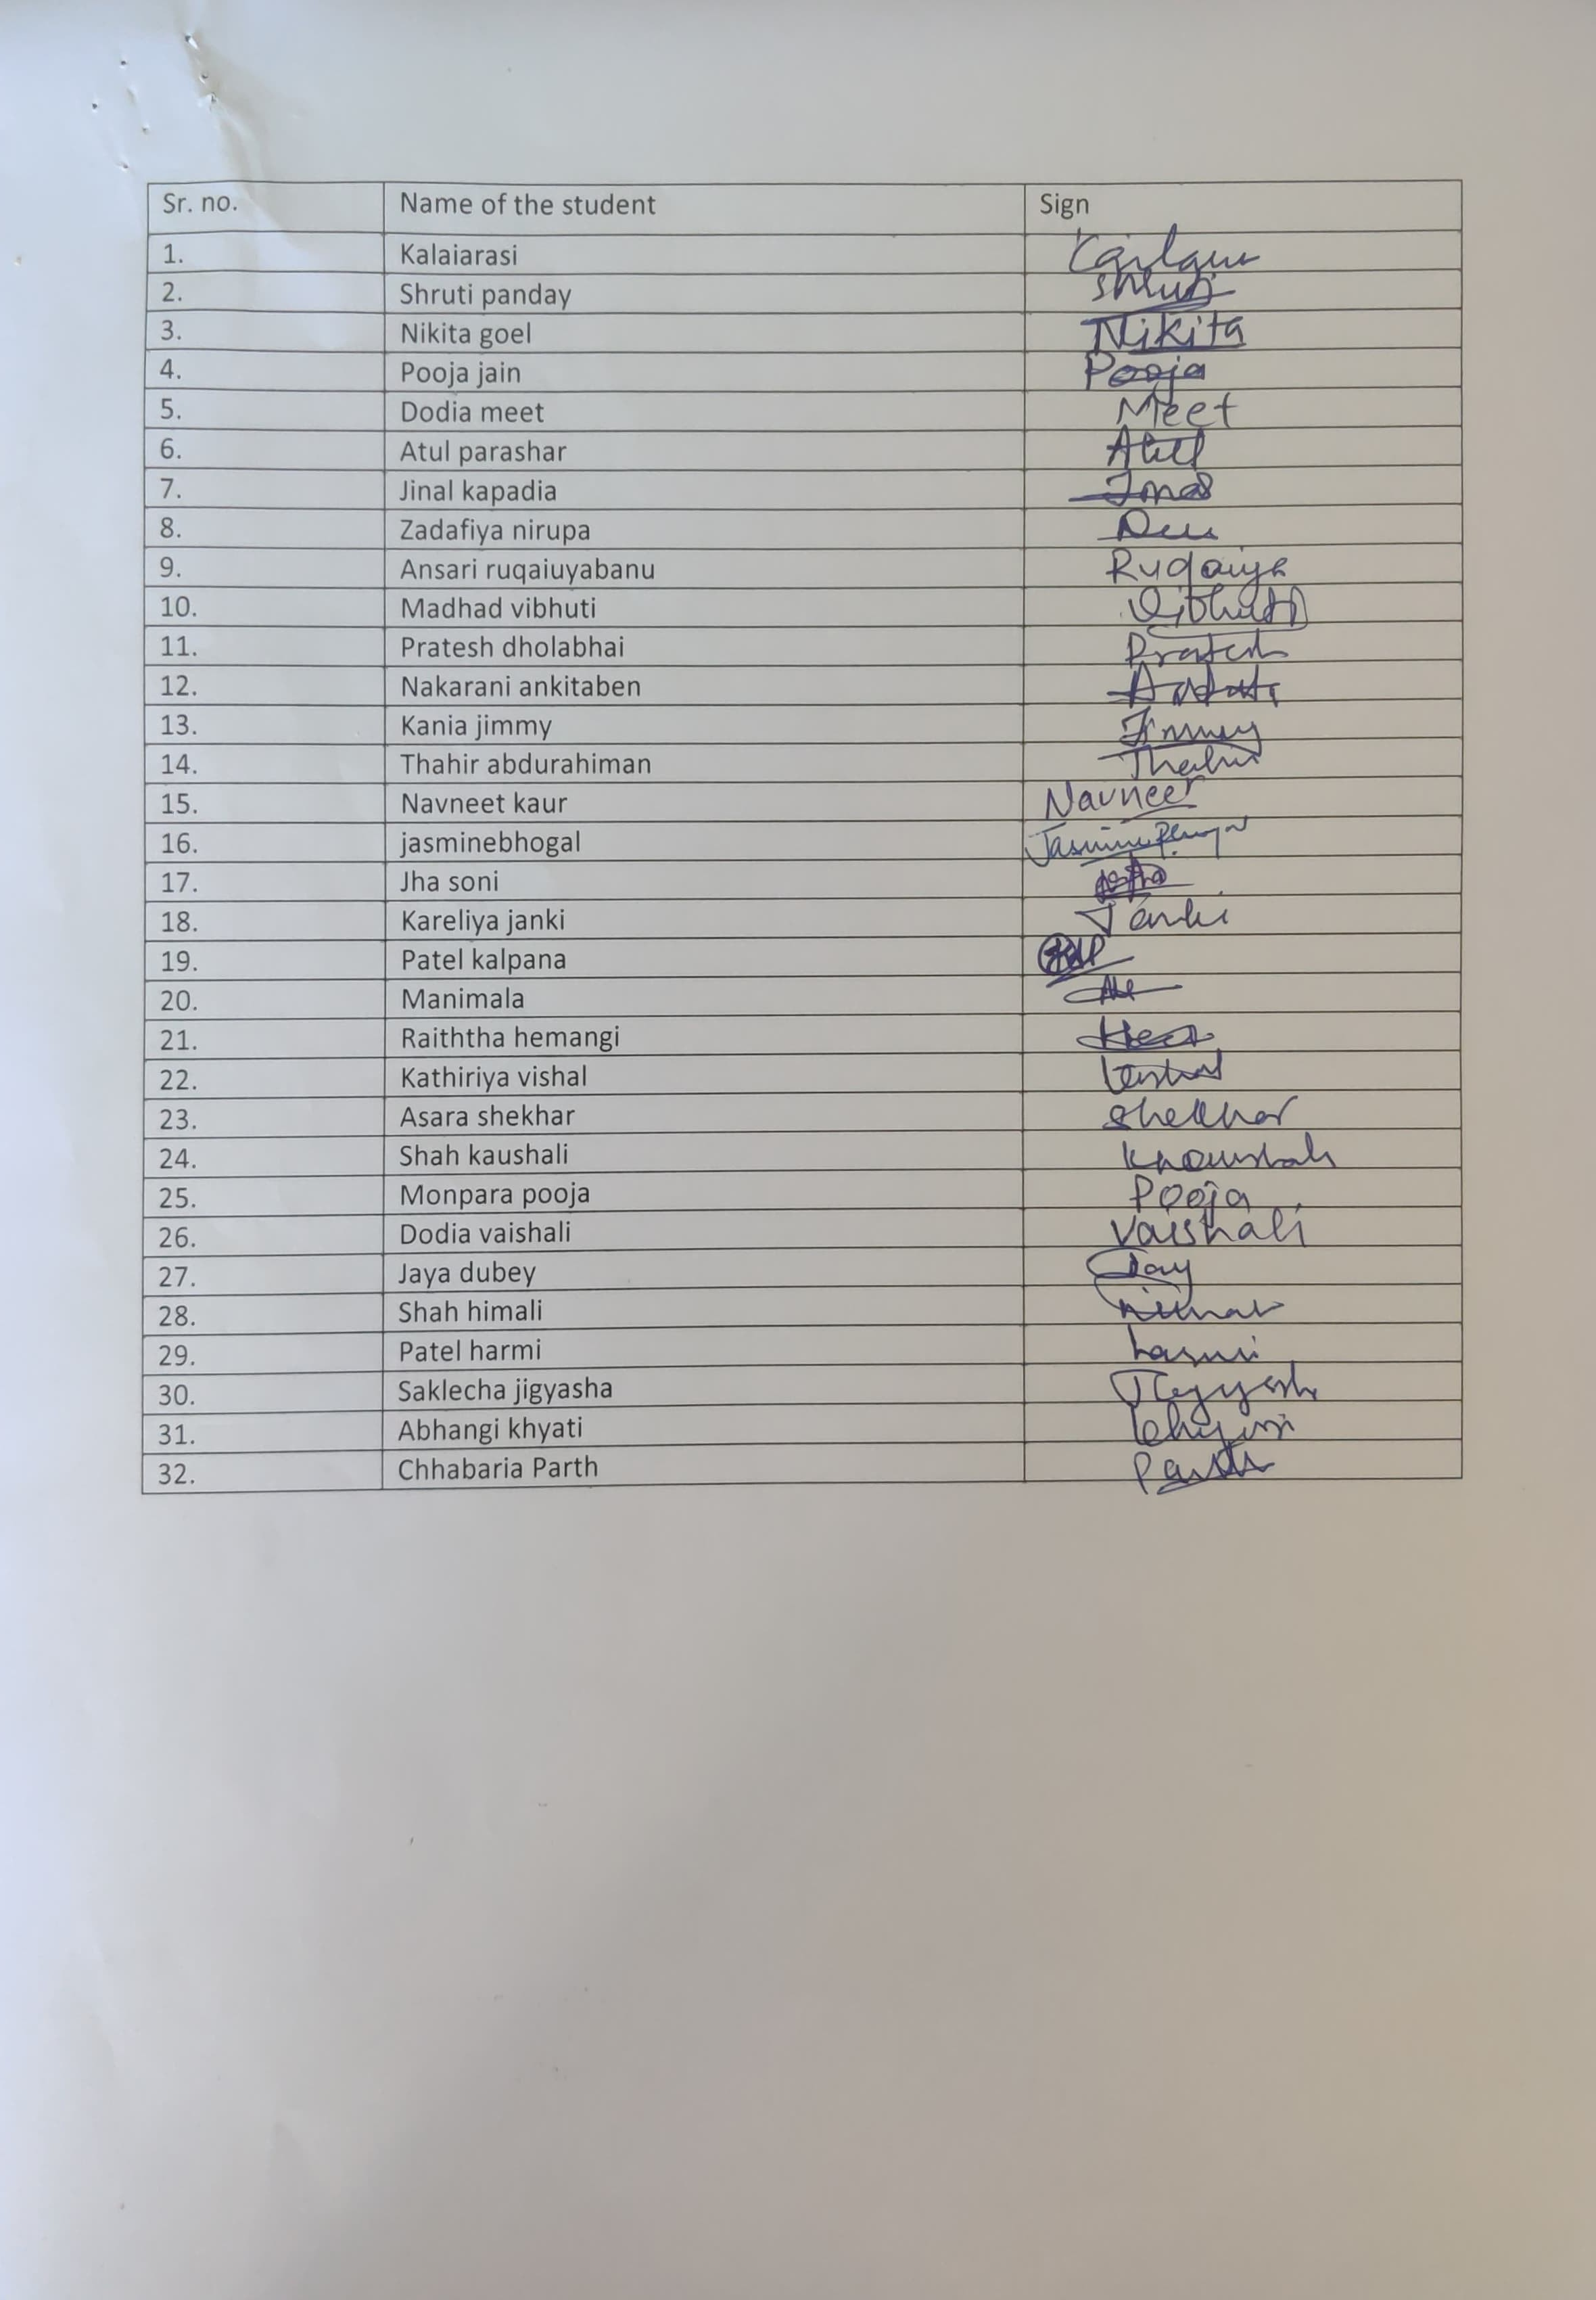 Sr. no. Name of the student Sign
1. Kalaiarasi
2. Shruti panday Shruti
3. Nikita goel Nikita
4. Pooja jain Pooja
5. Dodia meet Meet
6. Atul parashar Atul
7. Jinal kapadia
8. Zadafiya nirupa
9. Ansari ruqaiuyabanu Ruqaiya
10. Madhad vibhuti Vibhuti
11. Pratesh dholabhai Pratesh
12. Nakarani ankitaben
13. Kania jimmy Jimmy
14. Thahir abdurahiman Thahir
15. Navneet kaur Navneet
16. jasminebhogal
17. Jha soni
18. Kareliya janki Janki
19. Patel kalpana
20. Manimala
21. Raiththa hemangi
22. Kathiriya vishal
23. Asara shekhar Shekhar
24. Shah kaushali
25. Monpara pooja Pooja
26. Dodia vaishali Vaishali
27. Jaya dubey Jay
28. Shah himali
29. Patel harmi harmi
30. Saklecha jigyasha
31. Abhangi khyati
32. Chhabaria Parth Parth